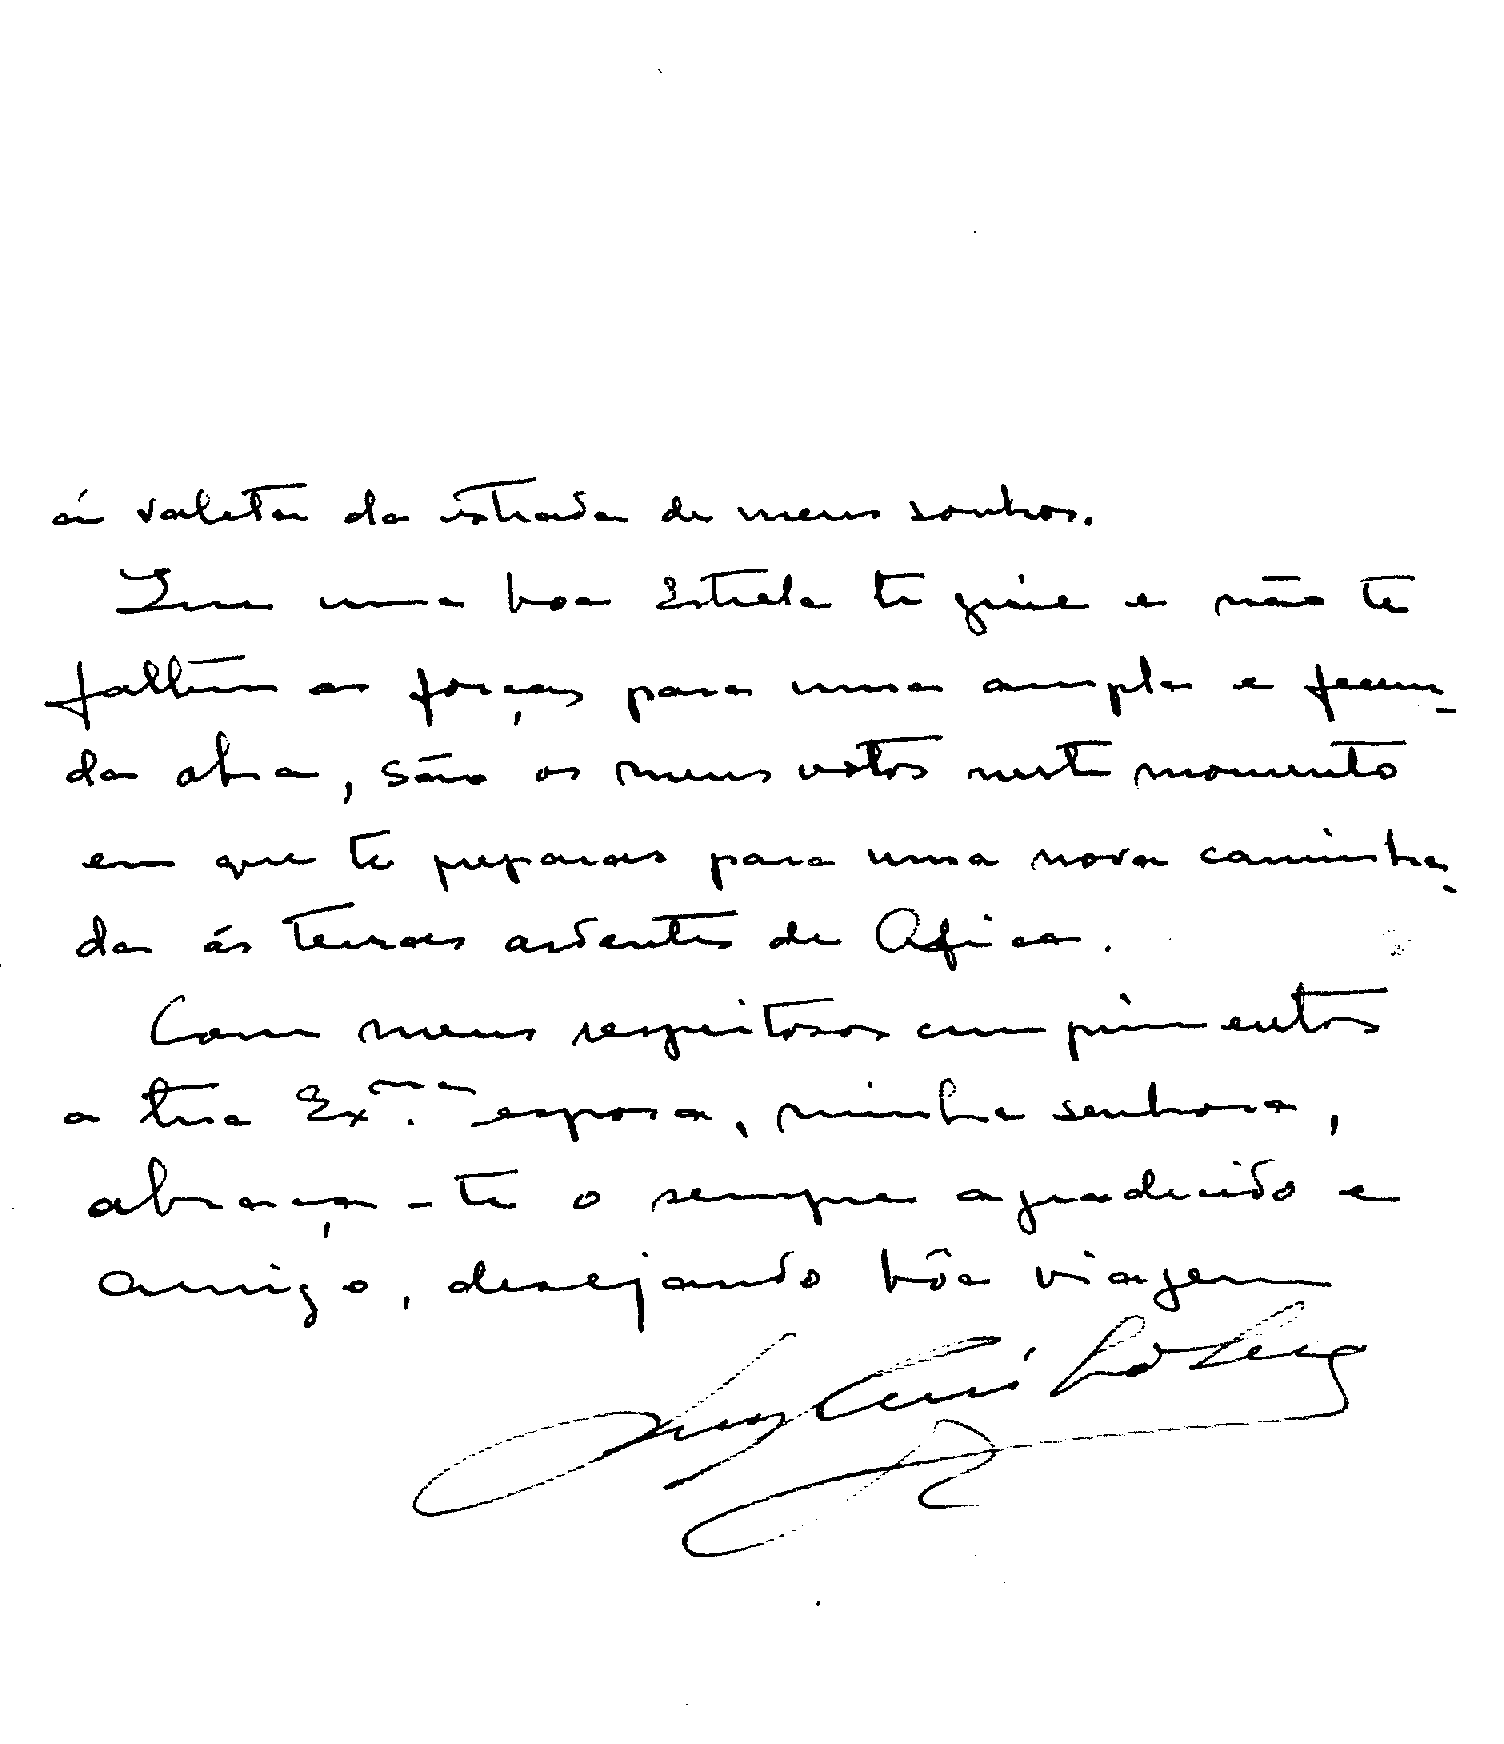 á valeta da estrada de meus sonhos.
Que uma boa Estrela te guie e não te
faltem as forças para uma ampla e fecun-
da obra, são os meus votos neste momento
em que te preparas para uma nova caminha-
da ás terras ardentes de Africa.
Com meus respeitosos cumprimentos
a tua Exma. esposa, minha senhora,
abraça-te o sempre agradecido e
amigo, desejando bôa viagem